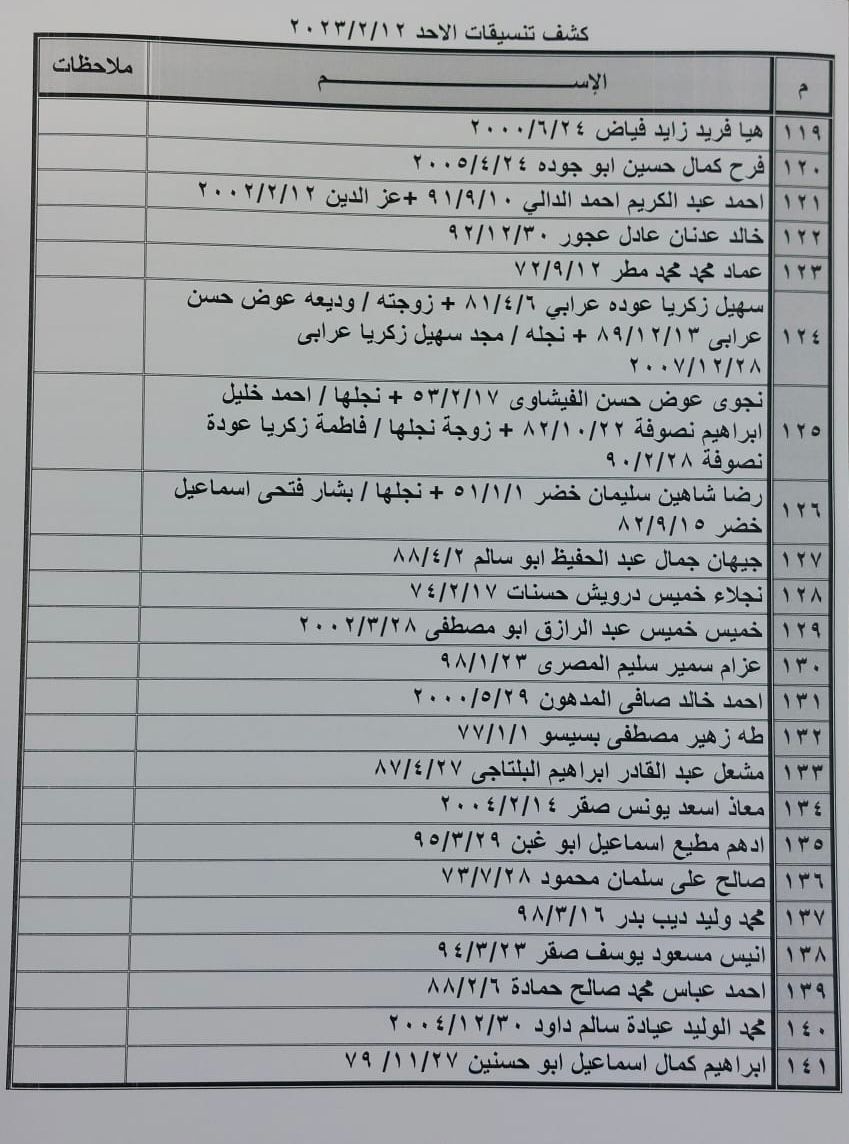 كشف تنسيقات الاحد ٢٠٢٣/٢/١٢
م الإســـــــــــــــــم ملاحظات
١١٩ هيا فريد زايد فياض ٢٠٠٠/٦/٢٤
١٢٠ فرح كمال حسين ابو جوده ٢٠٠٥/٤/٢٤
١٢١ احمد عبد الكريم احمد الدالي ٩١/٩/١٠ +عز الدين ٢٠٠٢/٢/١٢
١٢٢ خالد عدنان عادل عجور ٩٢/١٢/٣٠
١٢٣ عماد محمد محمد مطر ٧٢/٩/١٢
١٢٤ سهيل زكريا عوده عرابي ٨١/٤/٦ + زوجته / وديعه عوض حسن
عرابى ٨٩/١٢/١٣ + نجله / مجد سهيل زكريا عرابى
٢٠٠٧/١٢/٢٨
١٢٥ نجوى عوض حسن الفيشاوى ٥٣/٢/١٧ + نجلها / احمد خليل
ابراهيم نصوفة ٨٢/١٠/٢٢ + زوجة نجلها / فاطمة زكريا عودة
نصوفة ٩٠/٢/٢٨
١٢٦ رضا شاهين سليمان خضر ٥١/١/١ + نجلها / بشار فتحى اسماعيل
خضر ٨٢/٩/١٥
١٢٧ جيهان جمال عبد الحفيظ ابو سالم ٨٨/٤/٢
١٢٨ نجلاء خميس درويش حسنات ٧٤/٢/١٧
١٢٩ خميس خميس عبد الرازق ابو مصطفى ٢٠٠٢/٣/٢٨
١٣٠ عزام سمير سليم المصرى ٩٨/١/٢٣
١٣١ احمد خالد صافى المدهون ٢٠٠٠/٥/٢٩
١٣٢ طه زهير مصطفى بسيسو ٧٧/١/١
١٣٣ مشعل عبد القادر ابراهيم البلتاجى ٨٧/٤/٢٧
١٣٤ معاذ اسعد يونس صقر ٢٠٠٤/٢/١٤
١٣٥ ادهم مطيع اسماعيل ابو غبن ٩٥/٣/٢٩
١٣٦ صالح على سلمان محمود ٧٣/٧/٢٨
١٣٧ محمد وليد ديب بدر ٩٨/٣/١٦
١٣٨ انيس مسعود يوسف صقر ٩٤/٣/٢٣
١٣٩ احمد عباس محمد صالح حمادة ٨٨/٢/٦
١٤٠ محمد الوليد عيادة سالم داود ٢٠٠٤/١٢/٣٠
١٤١ ابراهيم كمال اسماعيل ابو حسنين ٧٩/١١/٢٧